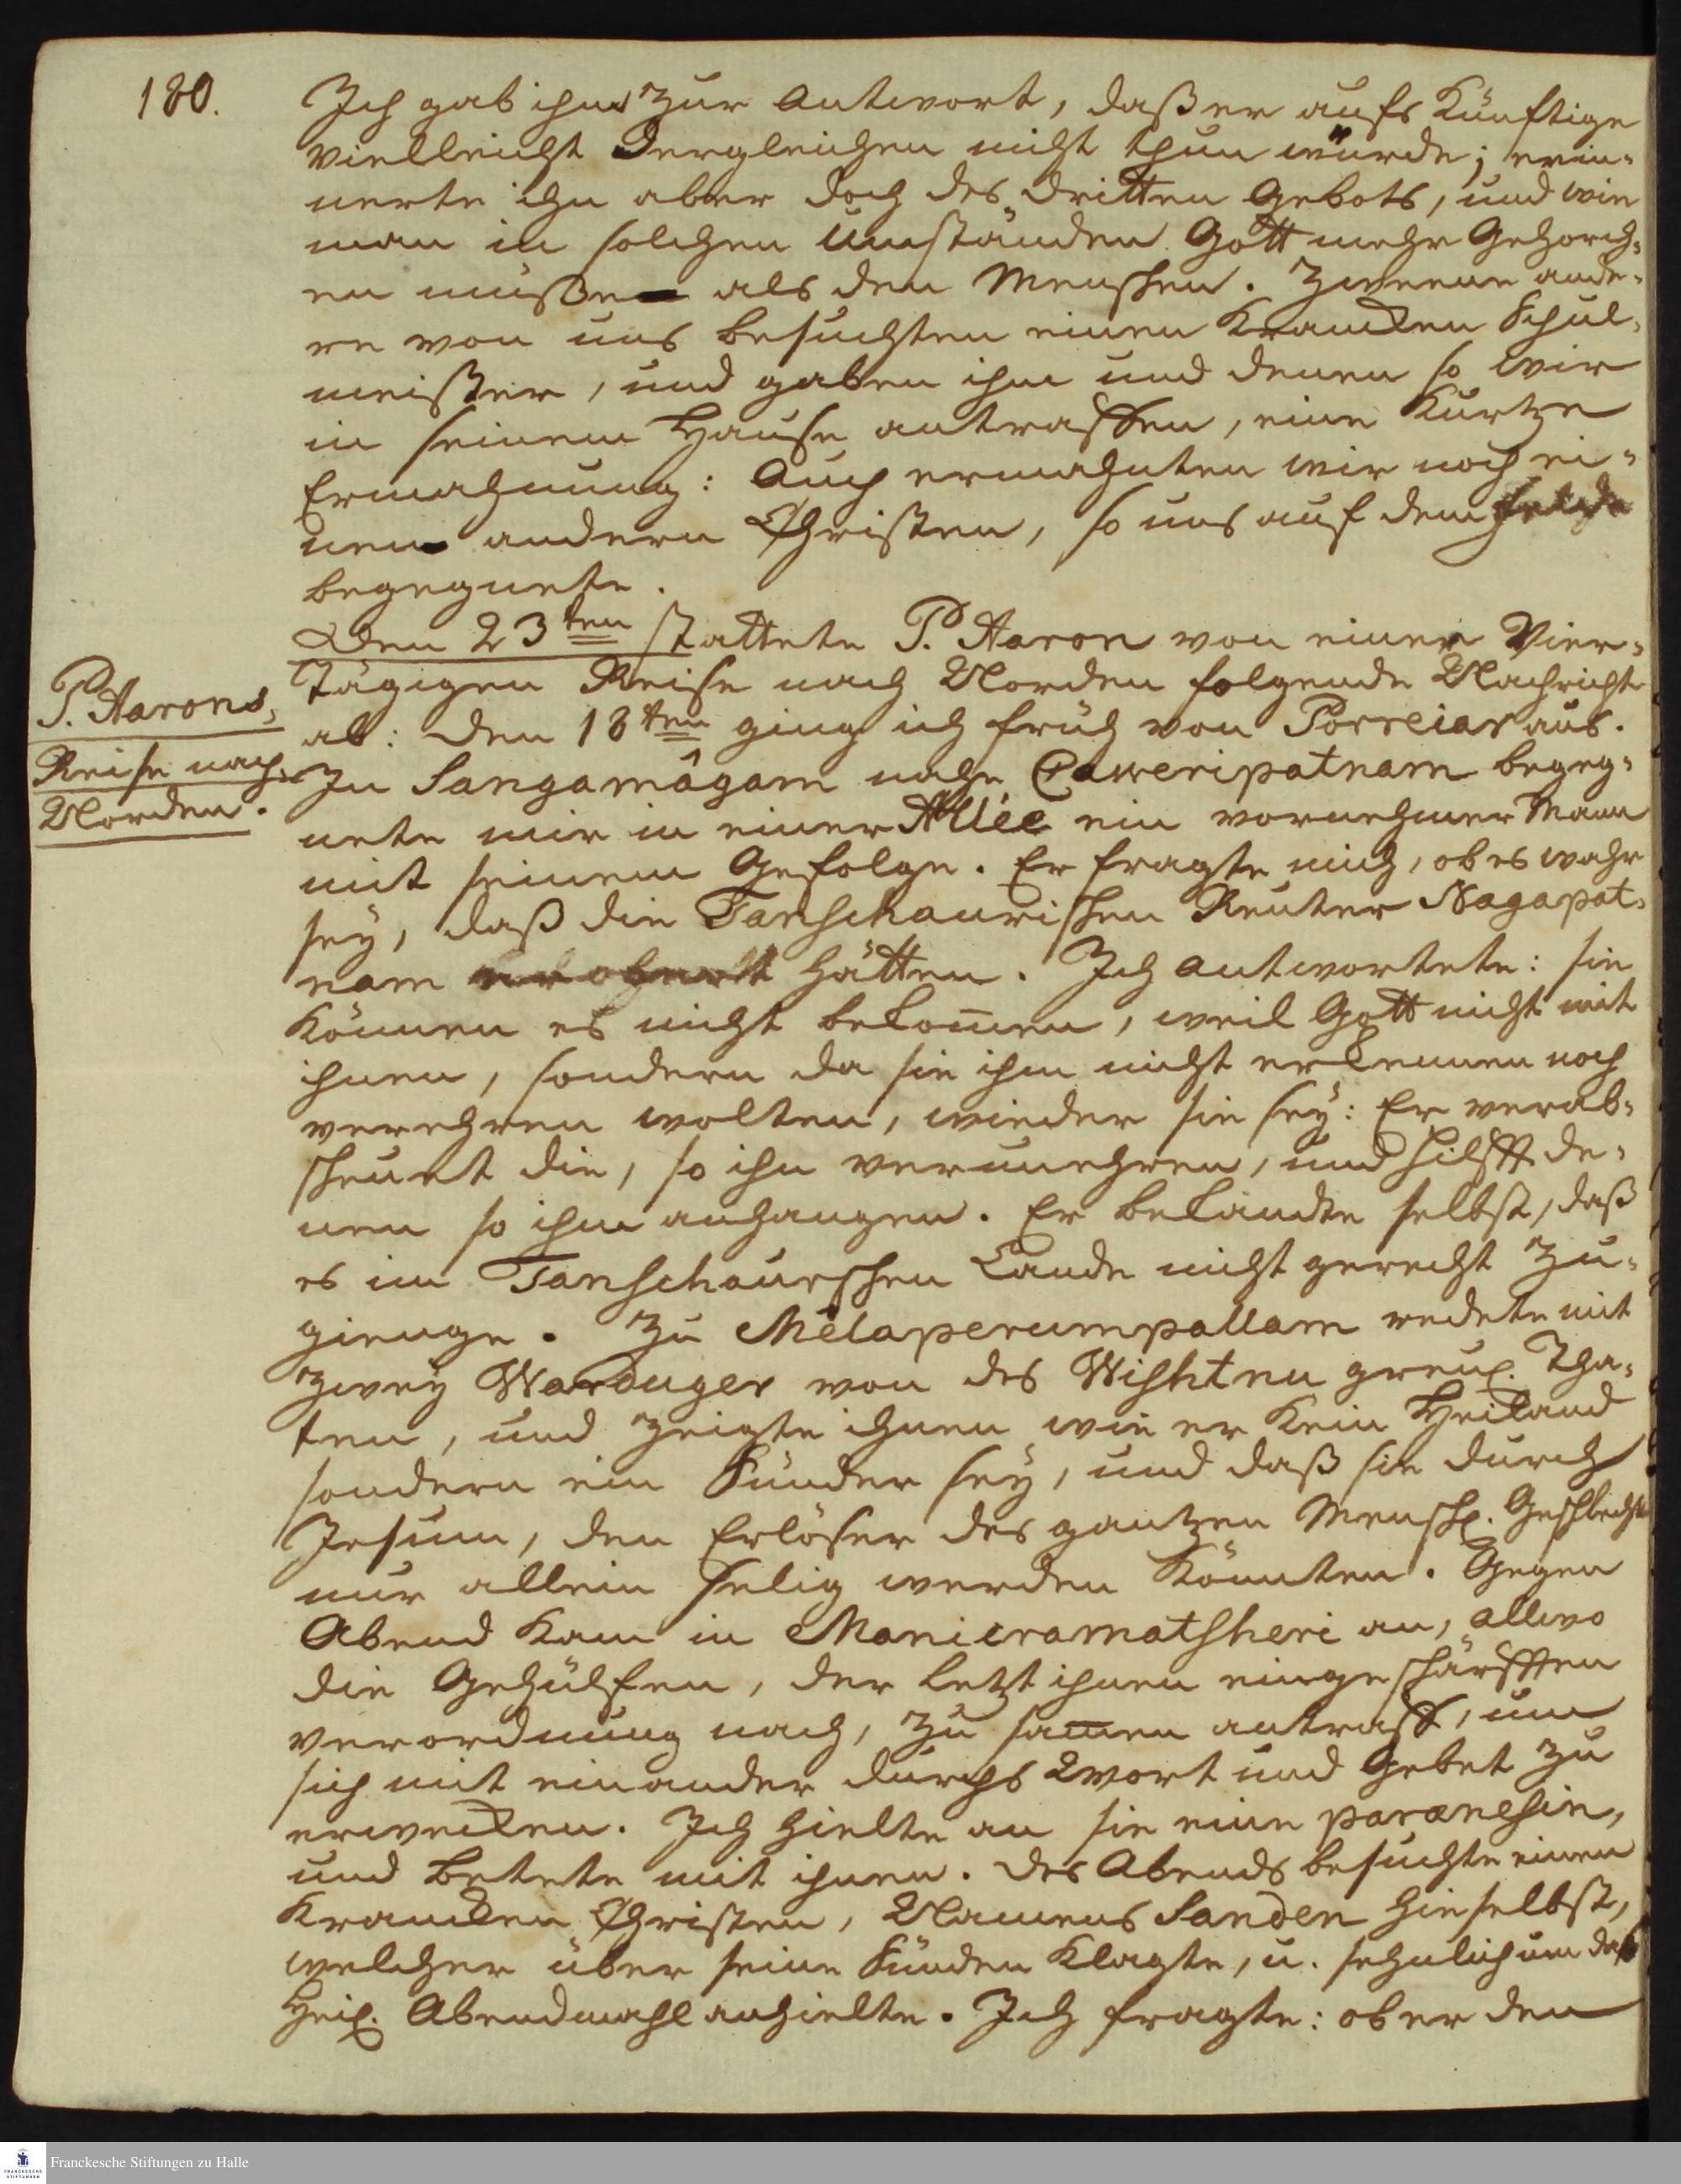 180.
Ich gab ihm zur Antwort, daß er aufs Künftige
vielleicht dergleichen nicht thun würde; erin-
nerte ihn aber doch des dritten Gebots, und wie
man in solchen Umständen Gott mehr gehorch-
en müße als den Menschen. Zweene ande-
re von uns besuchten einen Krancken Schul-
meister, und gaben ihm und denen so wir
in seinem Hause antraffen, eine Kurtze
Ermahnung: Auch ermahnten wir noch ei-
nen andern Christen, so uns auf dem Felde
begegnete.
Den 23ten stattete P. Aaron von einer Vier-
tägigen Reise nach Norden folgende Nachricht
P. Aarons
Reise nach
Norden.
ab: den 18ten ging ich früh von Porreiar aus.
In Sangamâgam nahe Caweripatnam begeg-
nete mir in einer Allée ein vornehmer Mann
mit seinem Gefolge. Er fragte mich, ob es wahr
sey, daß die Tanschaurischen Reuter Nagapat-
nam hätten. Ich antwortete: sie
Können es nicht bekom̄en, weil Gott nicht mit
ihnen, sondern da sie ihn nicht erkennen noch
verehren wolten, wieder sie sey: Er verab-
scheuet die, so ihn verunehren, und hilfft de-
nen so ihm anhangen. Er bekandte selbst, daß
es im Tanschaurschen Lande nicht gerecht zu-
gienge. Zu Mêlaperumpallam redete mit
zwey Warduger von des Wishtnu greul. Tha-
ten, und zeigte ihnen wie er Kein Heiland
sondern ein Sünder sey, und daß sie durch
Jesum, den Erlöser des gantzen Menschl. Geschlechts
nur allein selig werden Könnten. Gegen
Abend Kam in Manicramatsheri an, allwo
die Gehülfen, der letzt ihnen eingeschärfften
verordnung nach, zu sam̄en antraff, um
sich mit einander durchs Wort und Gebet zu
erwecken. Ich hielte an sie eine parænesin,
und betete mit ihnen. Des Abends besuchte einen
Krancken Christen, Namens Sanden hieselbst,
welcher über seine Sünden Klagte, u. sehnlich um das
Heil. Abendmahl anhielte. Ich fragte: ob er den
Franckesche Stiftungen zu Halle